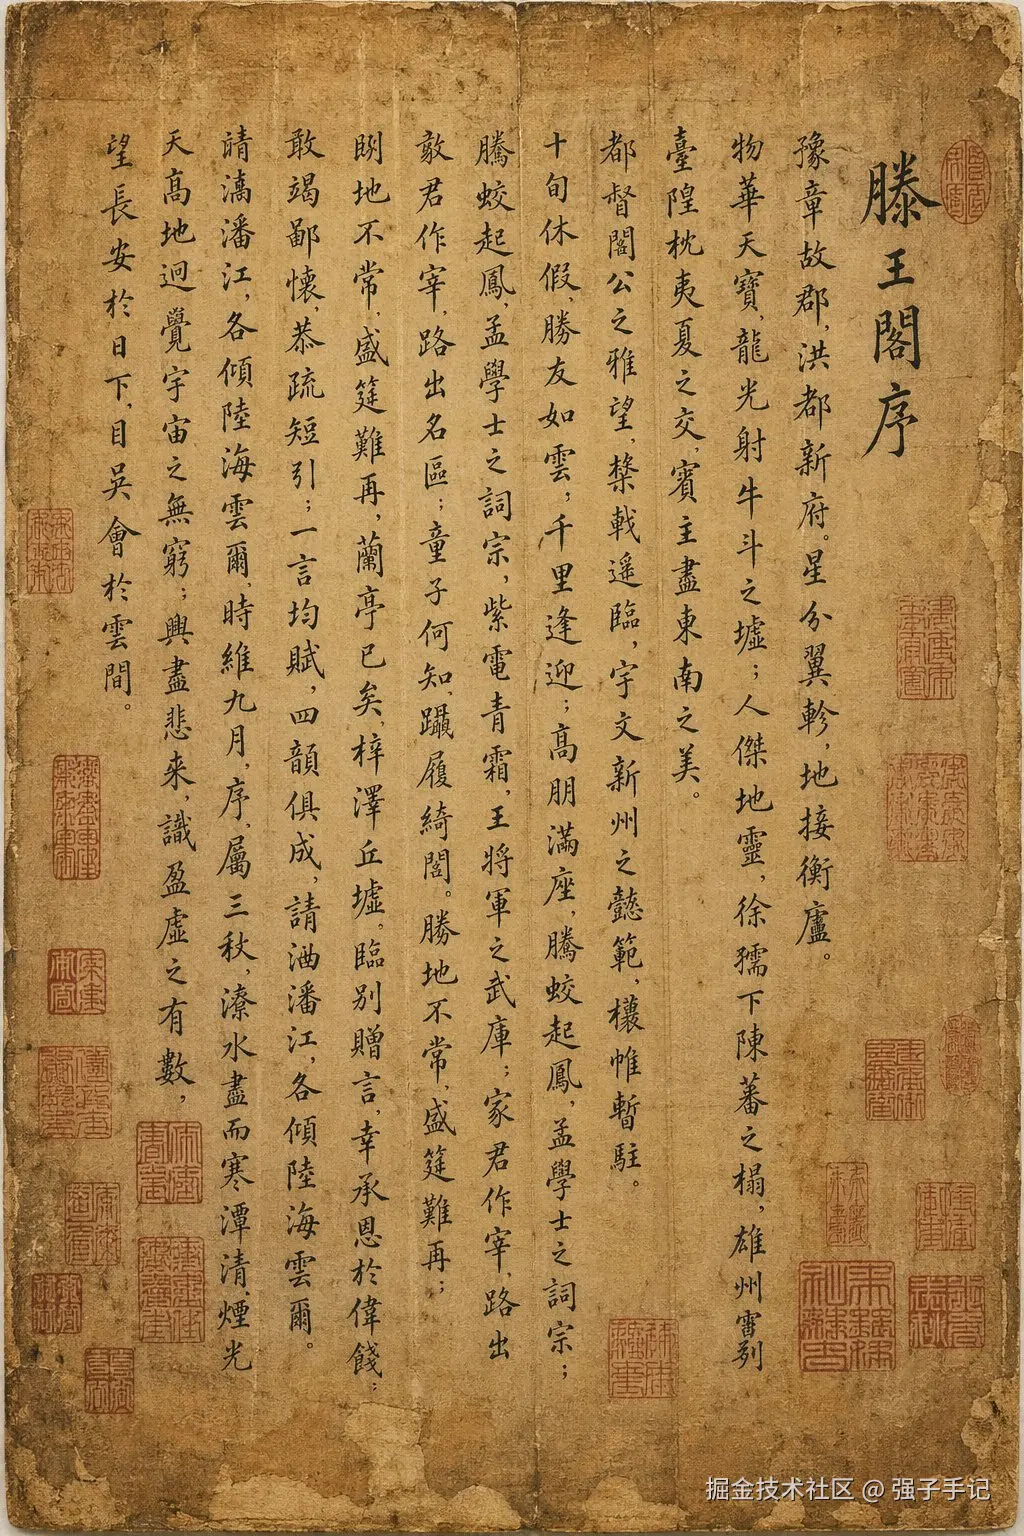 滕王閣序
豫章故郡,洪都新府。星分翼軫,地接衡廬。
物華天寶,龍光射牛斗之墟;人傑地靈,徐孺下陳蕃之榻,雄州霤列
臺隍枕夷夏之交,賓主盡東南之美。
都督閣公之雅望,棨戟遥臨,宇文新州之懿範,襜帷暫駐。
十旬休假,勝友如雲,千里逢迎;高朋滿座,騰蛟起鳳,孟學士之詞宗;
騰蛟起鳳,孟學士之詞宗,紫電青霜,王將軍之武庫;家君作宰,路出
君作宰,路出名區;童子何知,躡履綺閣。勝地不常,盛筵難再;
地不常,盛筵難再,蘭亭已矣,梓澤丘墟。臨別贈言,幸承恩於偉餞;
敢竭鄙懷,恭疏短引;一言均賦,四韻俱成,請洒潘江,各傾陸海雲爾。
潘江,各傾陸海雲爾,時維九月,序屬三秋,潦水盡而寒潭清,煙光
天高地迥覺宇宙之無窮;興盡悲来,識盈虚之有數,
望長安於日下,目吴會於雲間。
掘金技术社区 @ 强子手记